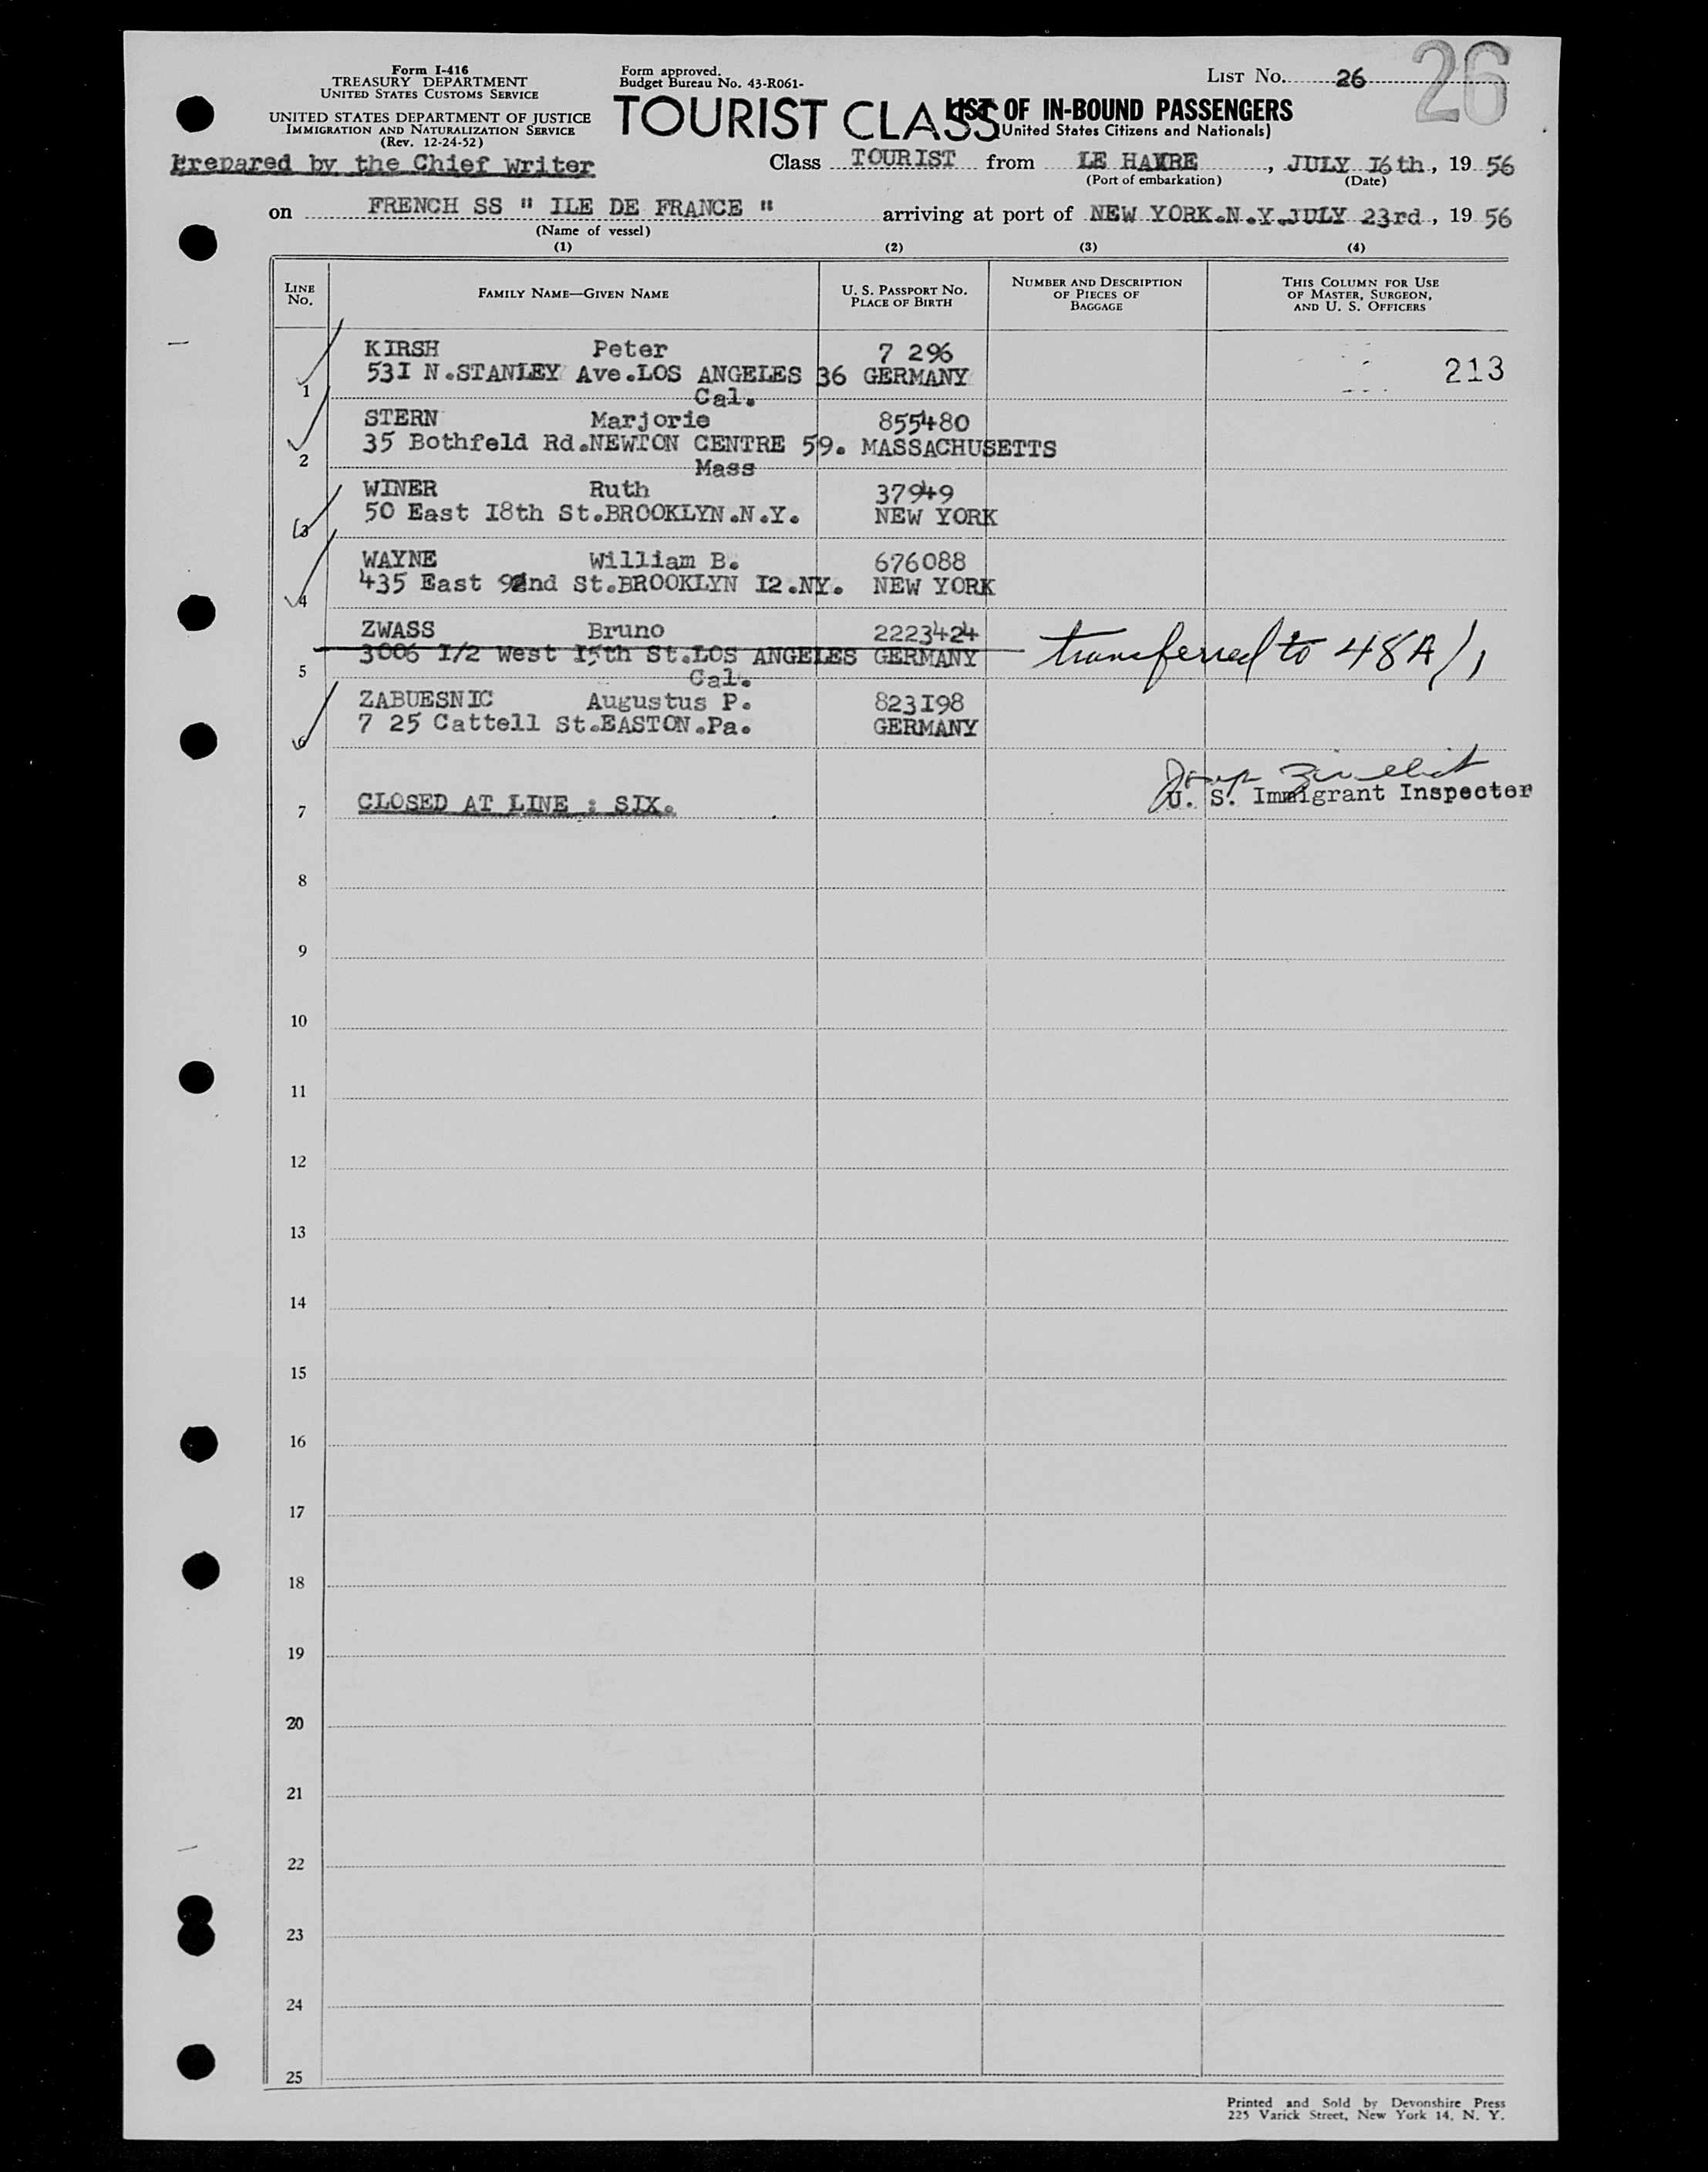 Form I-416
TREASURY DEPARTMENT
UNITED STATES CUSTOMS SERVICE
UNITED STATES DEPARTMENT OF JUSTICE
IMMIGRATION AND NATURALIZATION SERVICE
(Rev. 12-24-52)
Prepared by the Chief writer
Form approved.
Budget Bureau No. 43-R061-
LIST No. 26
26
TOURIST CLASS
LIST OF IN-BOUND PASSENGERS
(United States Citizens and Nationals)
Class TOURIST from LE HAVRE, JULY 16th, 19 56
(Port of embarkation) (Date)
on FRENCH SS " ILE DE FRANCE " arriving at port of NEW YORK.N.Y.JULY 23rd, 19 56
(Name of vessel)
(1) (2) (3) (4)
LINE No. FAMILY NAME—GIVEN NAME U. S. PASSPORT No. PLACE OF BIRTH NUMBER AND DESCRIPTION OF PIECES OF BAGGAGE THIS COLUMN FOR USE OF MASTER, SURGEON, AND U. S. OFFICERS
KIRSH Peter 7 296
1 53I N.STANLEY Ave.LOS ANGELES 36 GERMANY 213
Cal.
STERN Marjorie 855480
2 35 Bothfeld Rd.NEWTON CENTRE 59. MASSACHUSETTS
Mass
WINER Ruth 37949
3 50 East I8th St.BROOKLYN.N.Y. NEW YORK
WAYNE William B. 676088
4 435 East 92nd St.BROOKLYN I2.NY. NEW YORK
ZWASS Bruno 2223424
5 3006 I/2 West I5th St.LOS ANGELES GERMANY transferred to 48A/1
Cal.
ZABUESNIC Augustus P. 823I98
6 7 25 Cattell St.EASTON.Pa. GERMANY
7 CLOSED AT LINE : SIX. U. S. Immigrant Inspector
8
9
10
11
12
13
14
15
16
17
18
19
20
21
22
23
24
25
Printed and Sold by Devonshire Press
225 Varick Street, New York 14, N. Y.